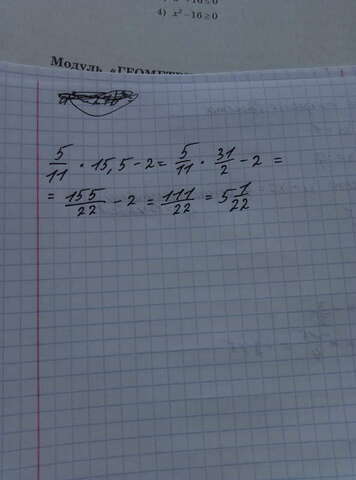 4) x² − 16 ≥ 0
Модуль «ГЕОМЕТР
5/11 · 15,5 − 2 = 5/11 · 31/2 − 2 =
= 155/22 − 2 = 111/22 = 5 1/22